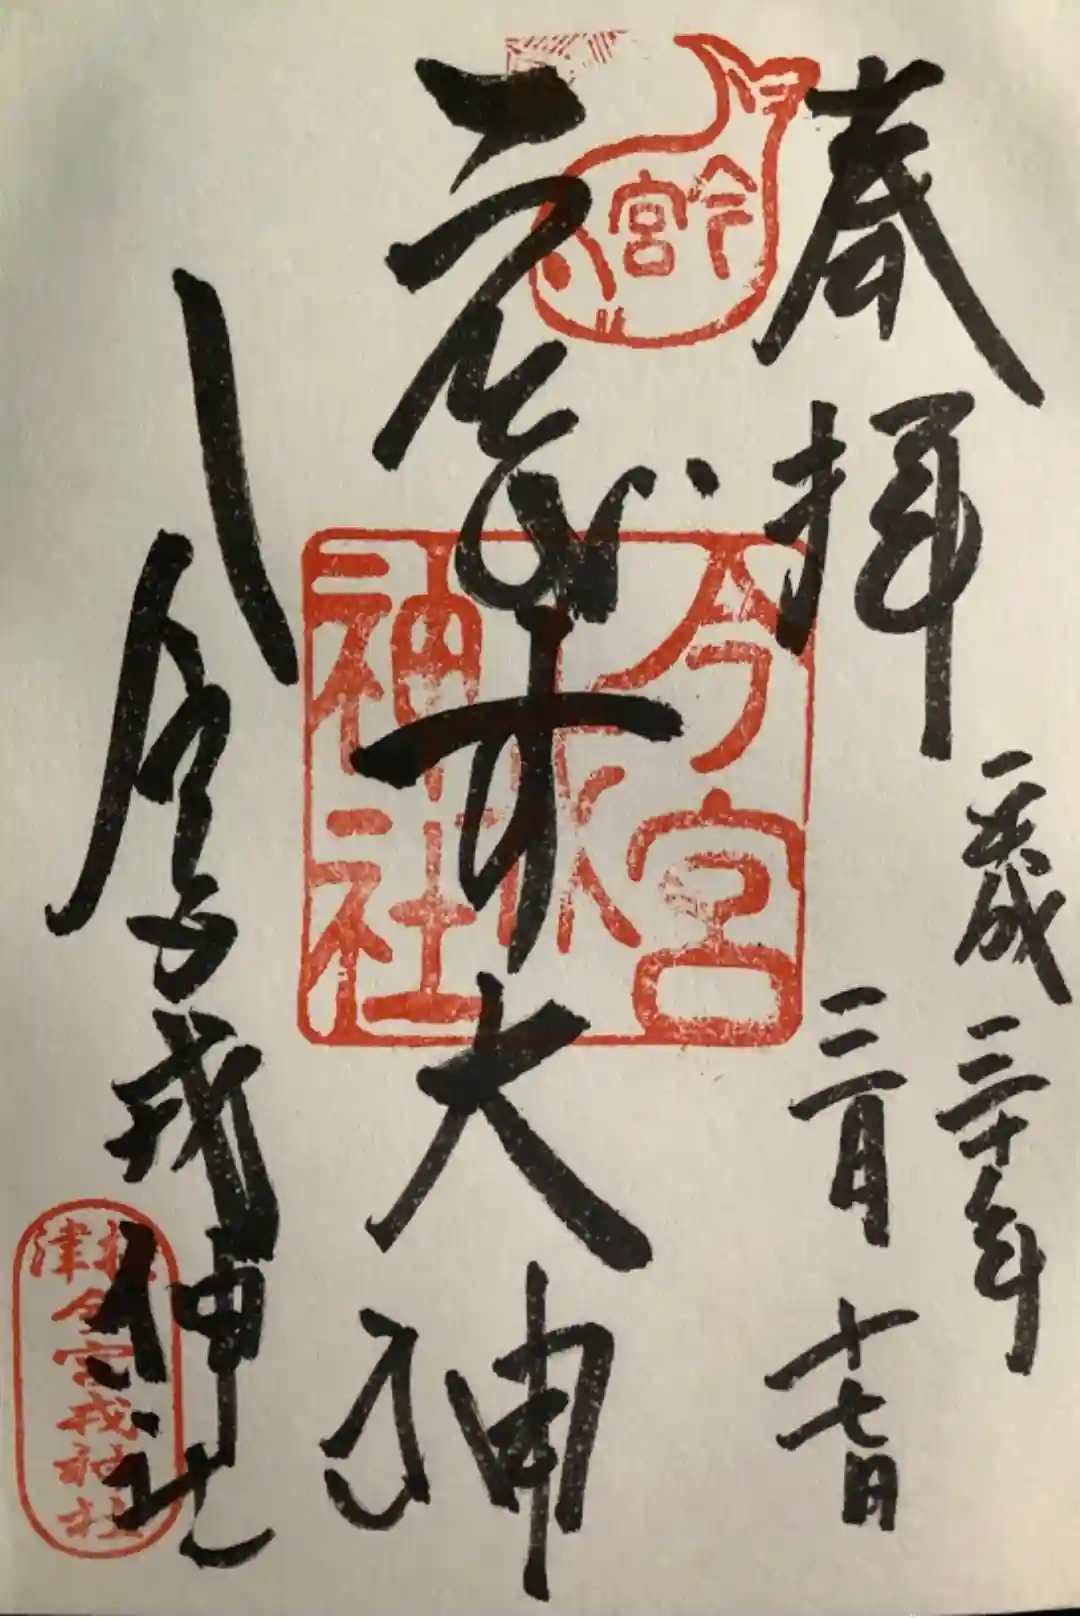 奉拝
平成三十年
三月十七日
大神
今宮戎神社
今宮
今宮
戎
神社
津
今宮戎神社